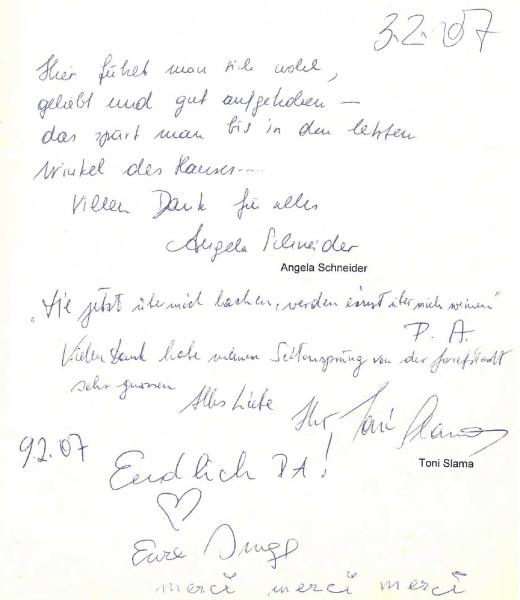 3.2.07
Hier fühlt man sich wohl,
geliebt und gut aufgehoben –
das spürt man bis in den letzten
Winkel des Hauses....
Vielen Dank für alles
Angela Schneider
Angela Schneider
„Die jetzt über mich lachen, werden einst über mich weinen"
P. A.
Vielen Dank habe meinen Seitensprung von der Josefstadt
sehr genossen
Alles Liebe Ihr Toni Slama
Toni Slama
9.2.07
Endlich DA!
Eure
merci merci merci